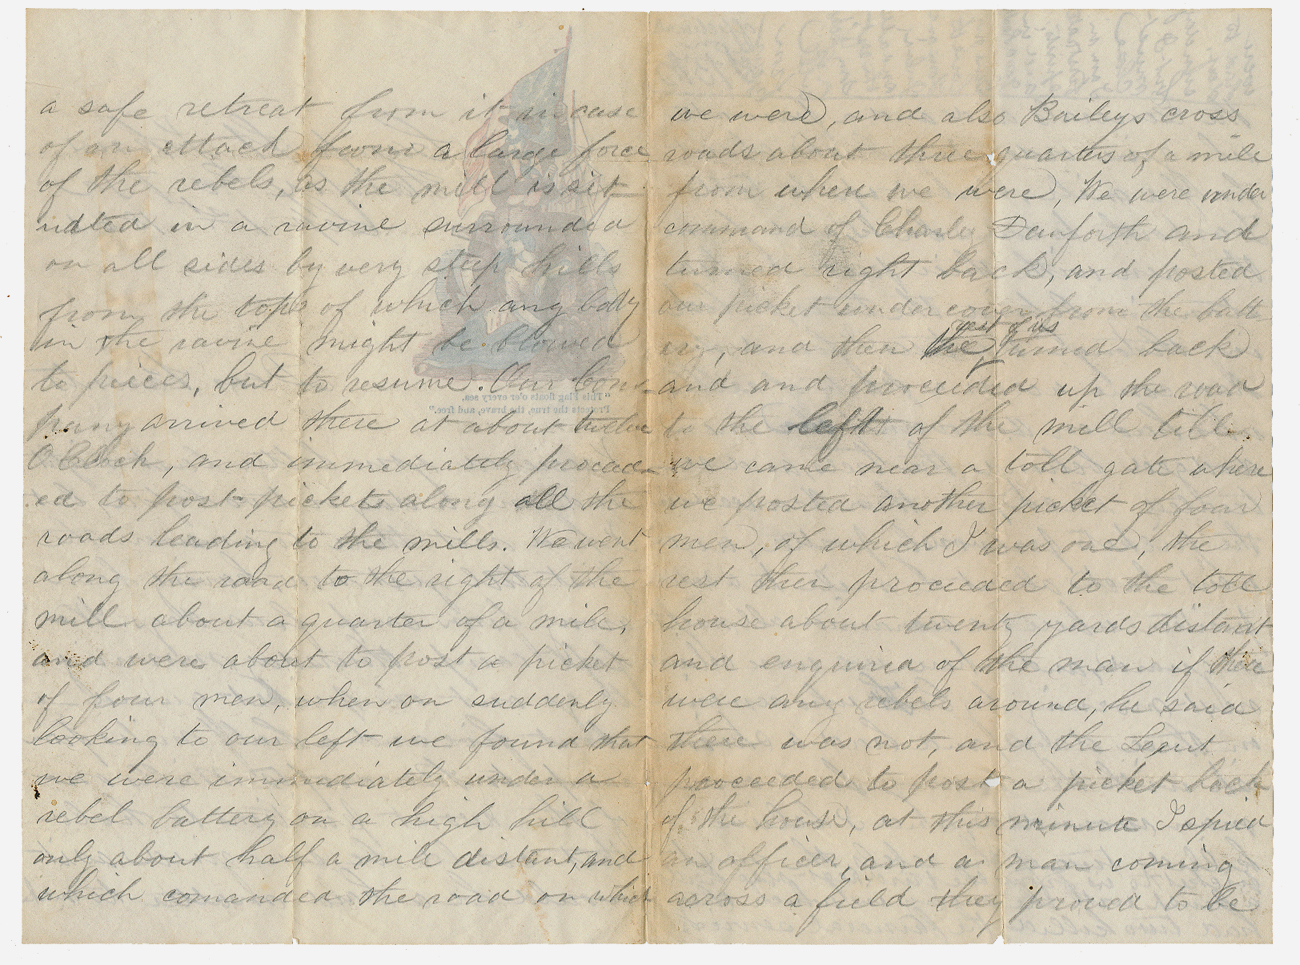 a safe retreat from it in case
of an attack from a large force
of the rebels, as the mill is sit
uated in a ravine surrounded
on all sides by very steep hills
from the tops of which any body
in the ravine might be blowed
to pieces, but to resume. Our Com-
pany arrived there at about twelve
O Clock, and immediately proceed-
ed to post pickets along all the
roads leading to the mills. We went
along the road to the right of the
mill about a quarter of a mile,
and were about to post a picket
of four men, when on suddenly
looking to our left we found that
we were immediately under a
rebel battery on a high hill
only about half a mile distant, and
which comanded the road on which
"This Flag floats o'er every sea.
Protects the true, the brave, and free."
we were, and also Baileys cross
roads about three quarters of a mile
from where we were, We were under
command of Charley Danforth and
turned right back, and posted
our picket under cover from the batt
ery, and then the rest of us turned back
and and proceeded up the road
to the left of the mill till
we came near a toll gate where
we posted another picket of four
men, of which I was one, the
rest then proceeded to the toll
house about twenty yards distant
and enquired of the man if there
were any rebels around, he said
there was not, and the Leiut
proceeded to post a picket back
of the house, at this minute I spied
an officer, and a man coming
across a field they proved to be